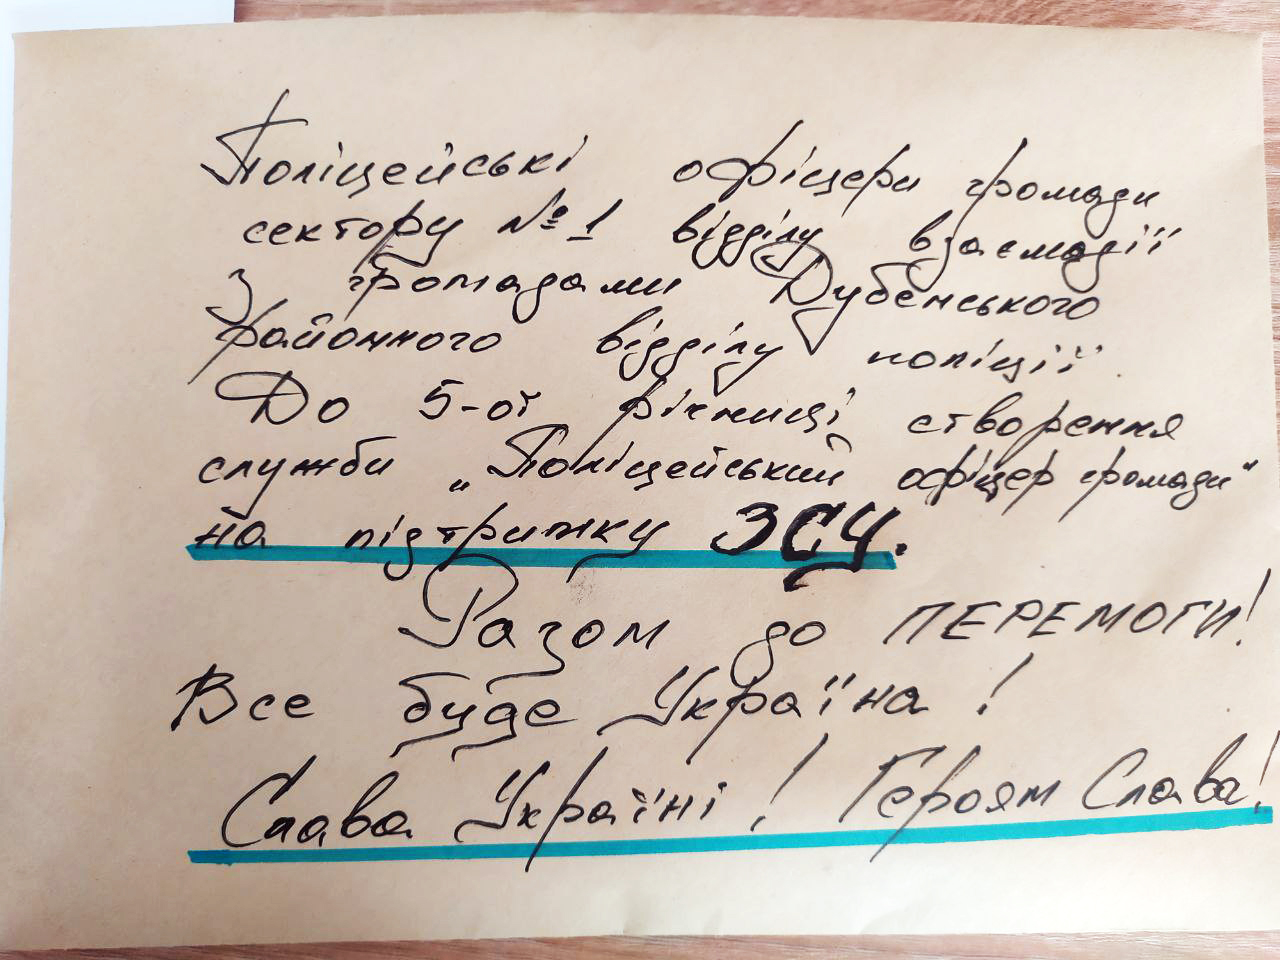 Поліцейські офіцери громади
сектору №1 відділу взаємодії
з громадами Дубенського
районного відділу поліції.
До 5-ої річниці створення
служби „Поліцейський офіцер громади"
на підтримку ЗСУ.
Разом до ПЕРЕМОГИ!
Все буде Україна!
Слава Україні! Героям Слава!